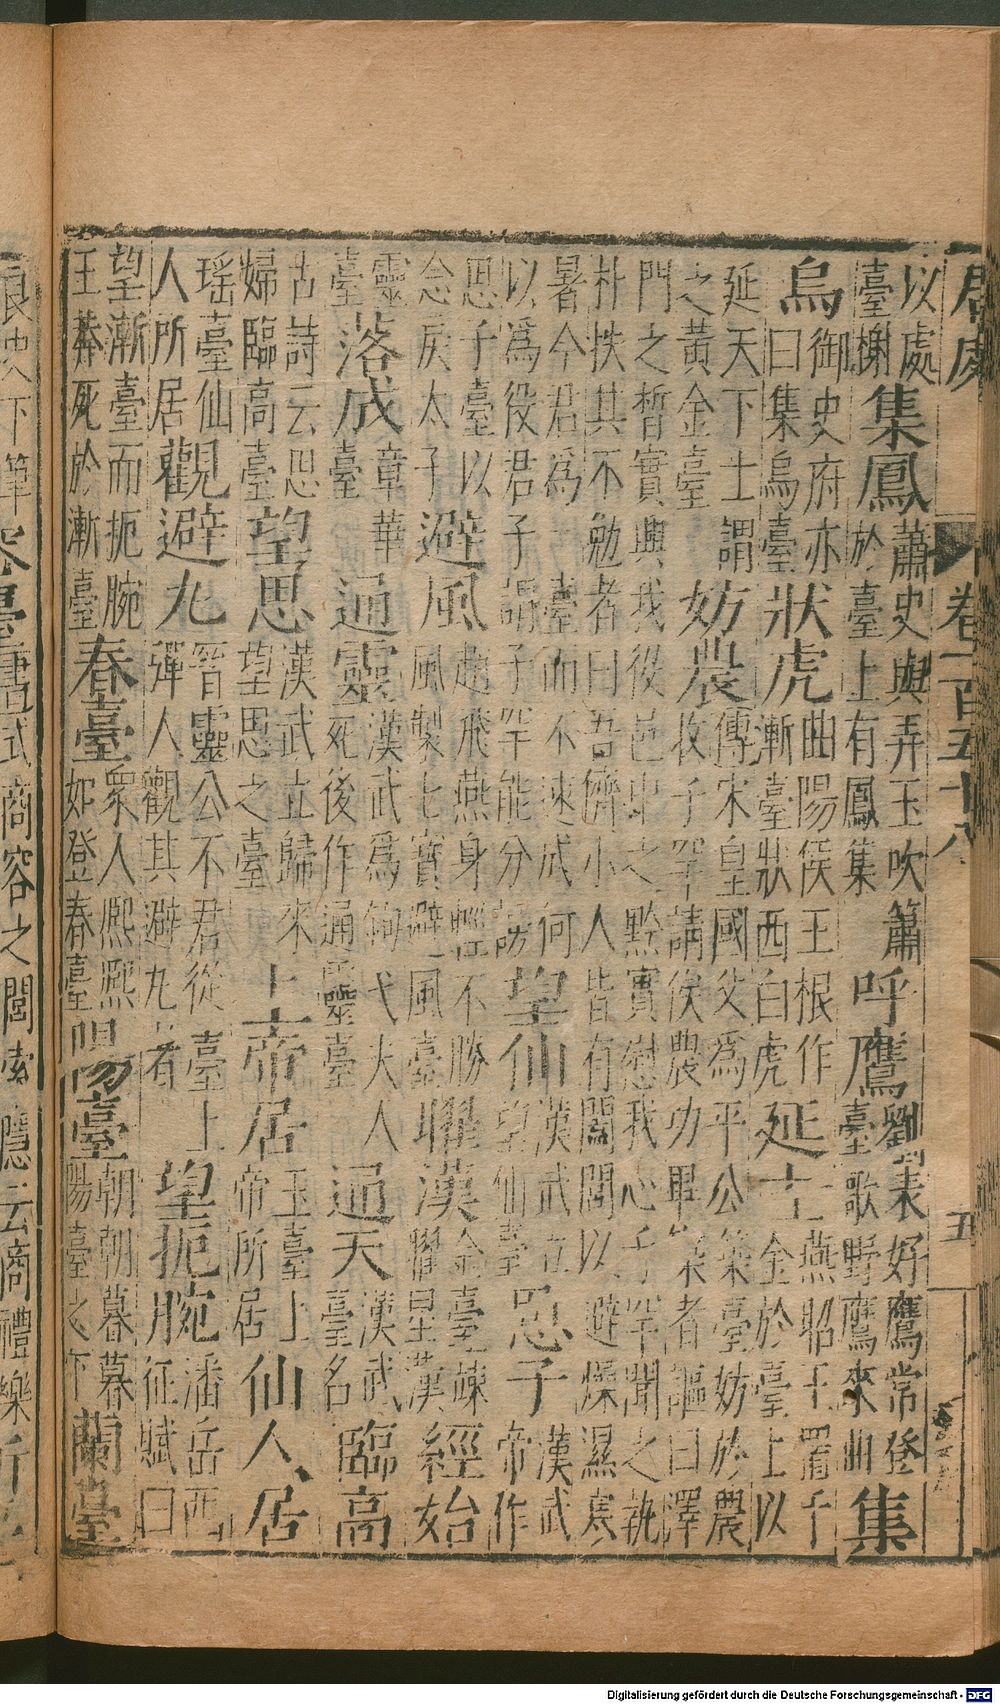 居處 卷一百五十八 五
以處
臺榭
集鳳
蕭史與弄玉吹簫
於臺上有鳳集
呼鷹
劉表好鷹常登
臺歌野鷹來曲
集
烏
御史府亦
曰集烏臺
狀虎
曲陽侯王根作
漸臺狀西白虎
延士
燕昭王置千
金於臺上以
延天下士謂
之黃金臺
妨農
傳宋皇國父為平公築臺妨於農
收子罕請俟農功畢築者謳曰澤
門之晳實興我役邑中之黔實慰我心子罕聞之執
朴抶其不勉者曰吾儕小人皆有闔閭以避燥濕寒
暑今君爲臺而不速成何
以爲役君子謂子罕能分謗
望仙
漢武立
望仙臺
思子
漢武
帝作
思子臺以
念戾太子
避風
趙飛燕身輕不勝
風製七寶避風臺
耀漢
金臺疎
耀星漢
經始
靈
臺
落成
章華
臺
通靈
漢武爲鉤弋夫人
死後作通靈臺
通天
漢武
臺名
臨高
古詩云思
婦臨高臺
望思
漢武立歸來
望思之臺
上帝居
玉臺上
帝所居
仙人居
瑶臺仙
人所居
觀避丸
晉靈公不君從臺上
彈人觀其避丸者
望扼腕
潘岳西
征賦曰
望漸臺而扼腕
王莽死於漸臺
春臺
衆人熙熙
如登春臺
陽臺
朝朝暮暮
陽臺之下
蘭臺
良史下筆 商容之閭索隱云商禮樂
Digitalisierung gefördert durch die Deutsche Forschungsgemeinschaft - DFG